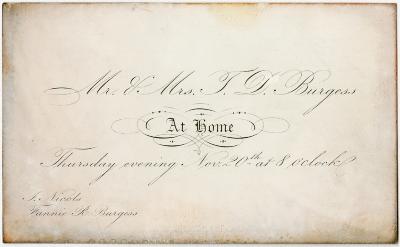 Mr. & Mrs. T. D. Burgess
At Home
Thursday evening Nov. 20th at 8 o'clock
T. Nicols
Fannie R. Burgess